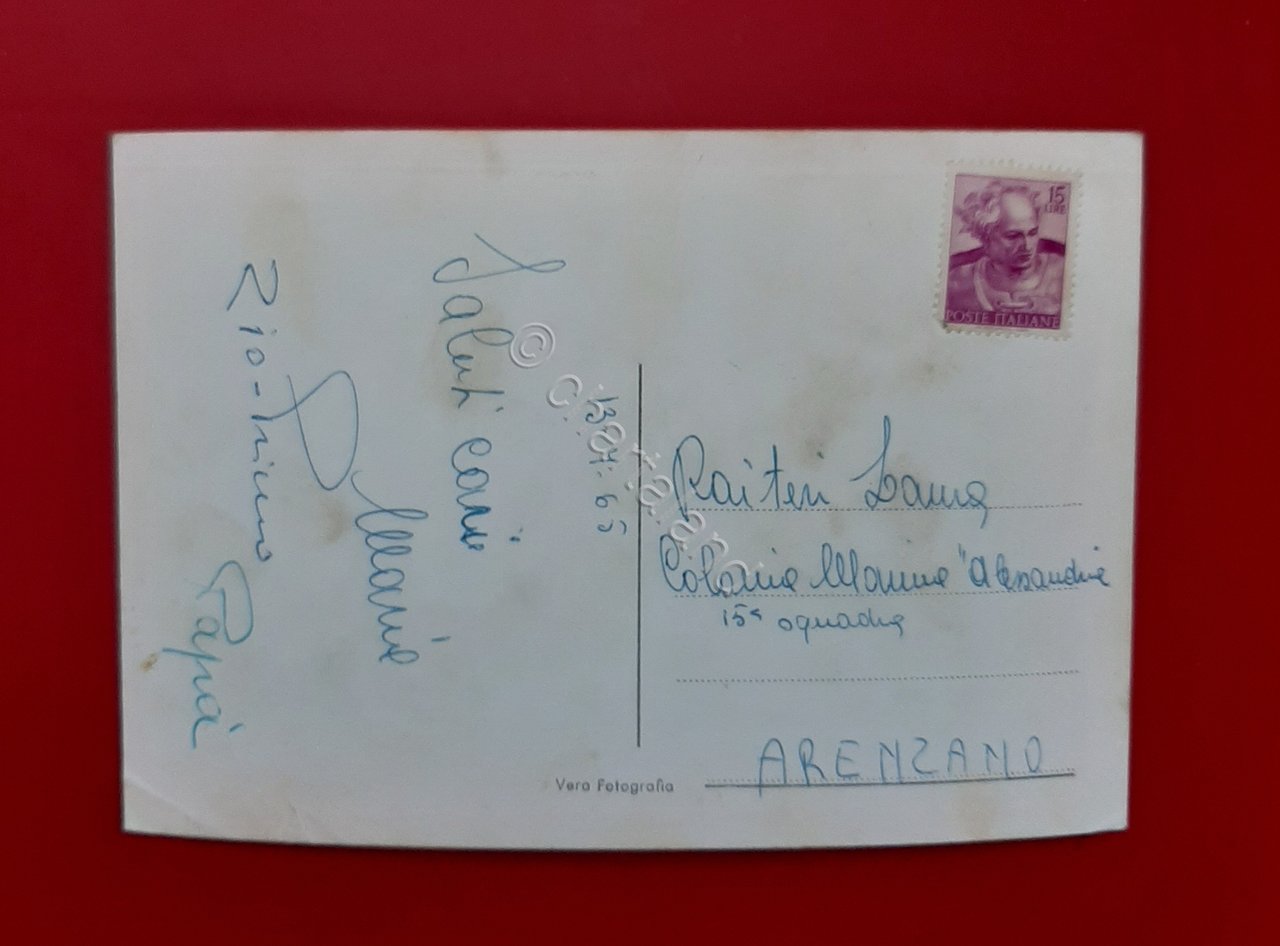 13.7.65
Saluti cari
Maria
Zio-Primo
Papà
15
LIRE
POSTE ITALIANE
Raiteri Laura
Colonia Marina "Alessandria
15ª squadra
ARENZANO
Vera Fotografia
© charta.ano